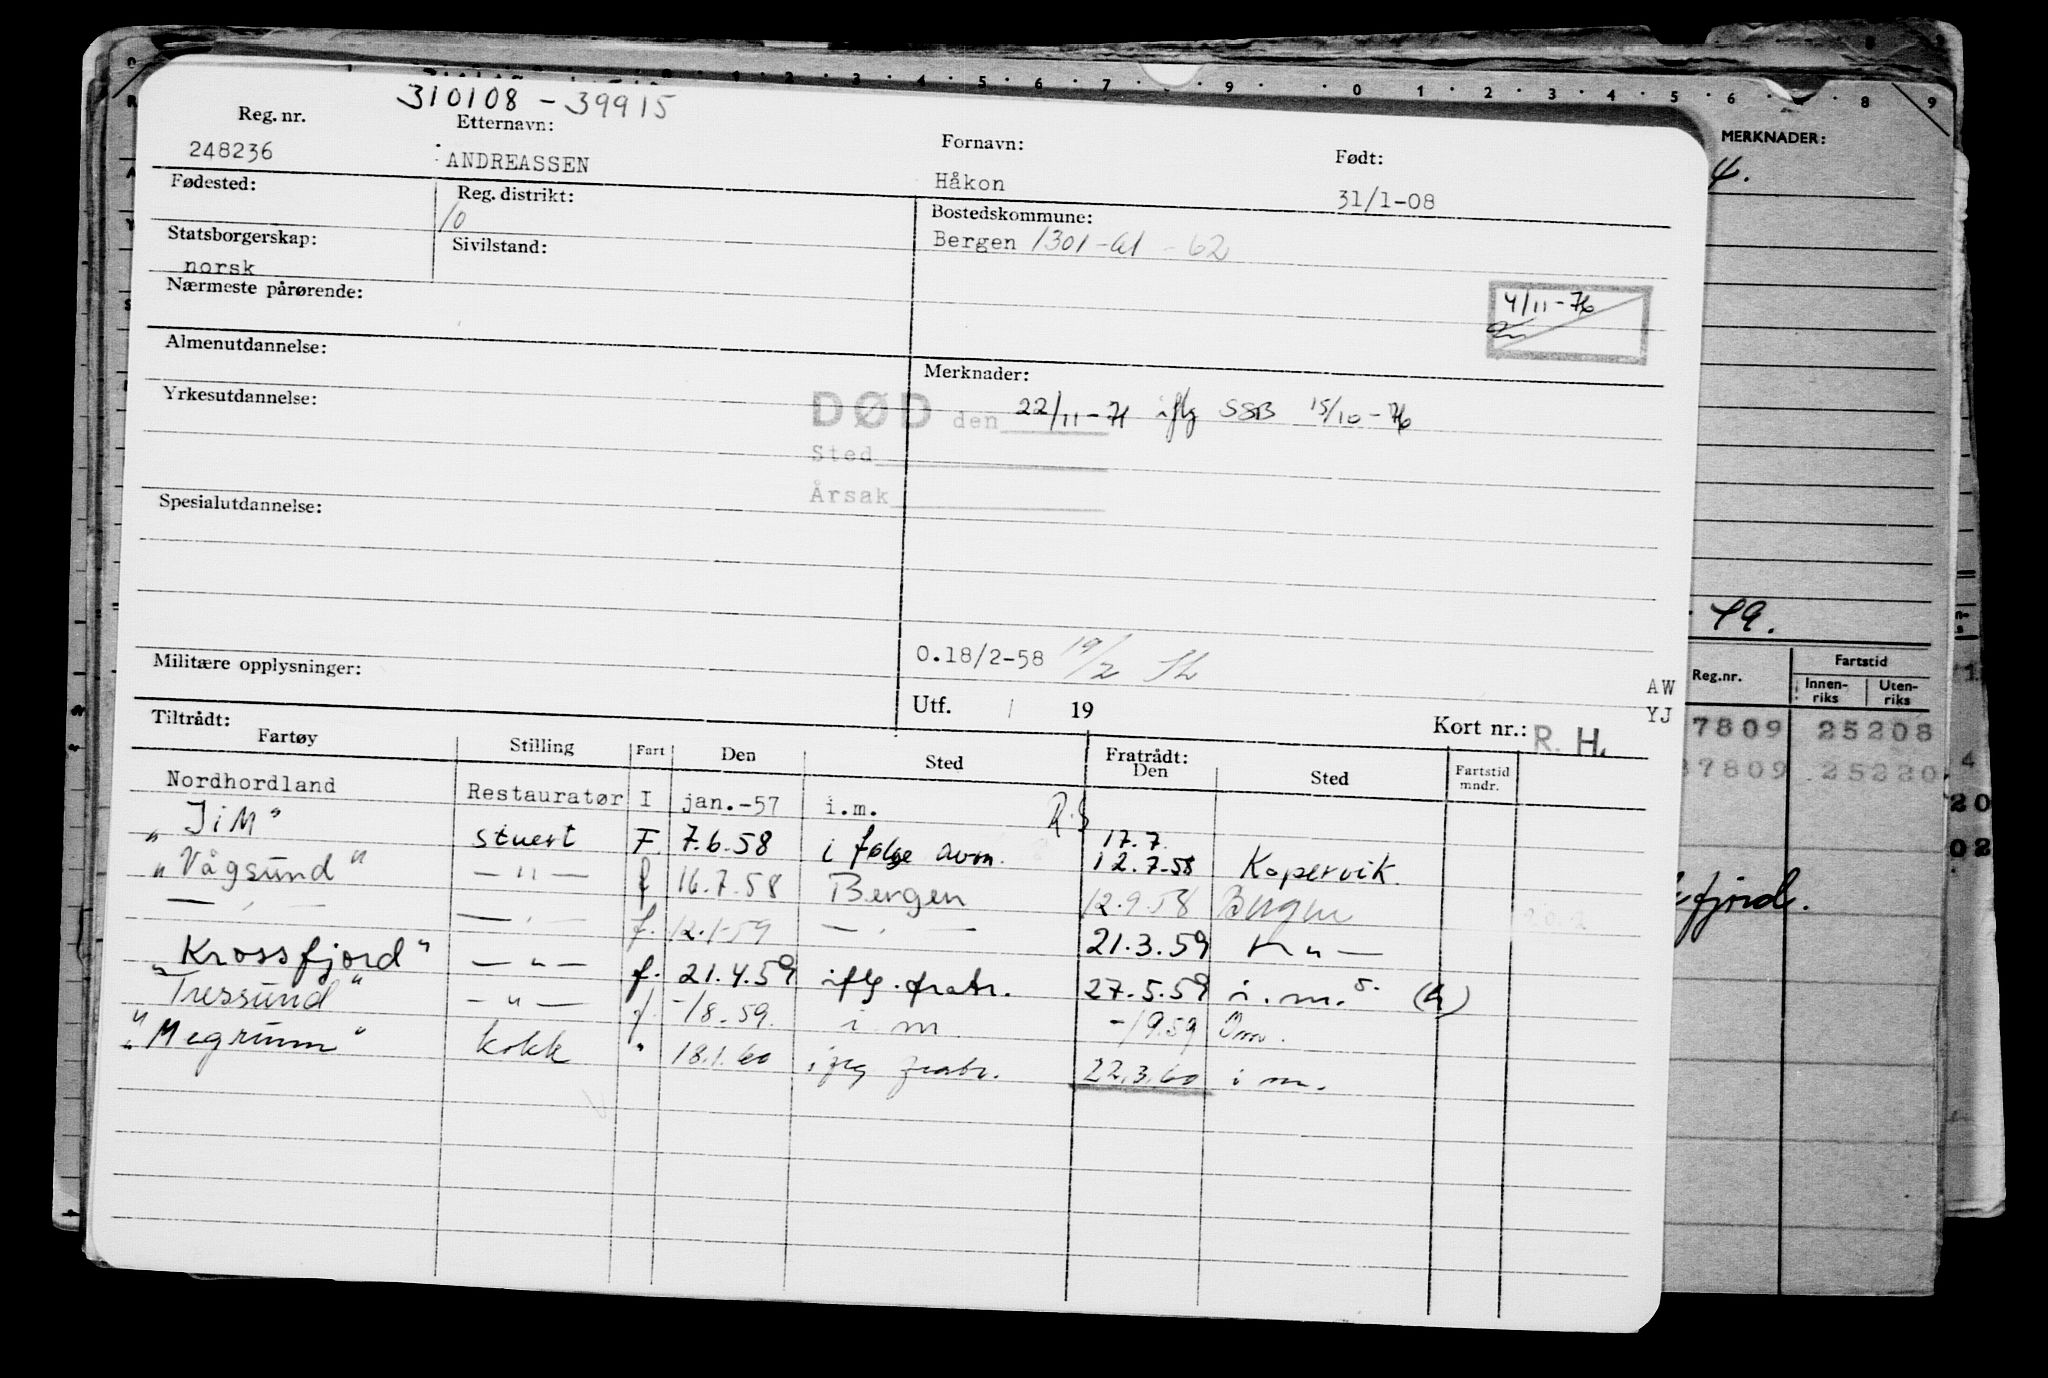 310108 - 39915
Reg. nr. Etternavn: Fornavn: Født:
248236 ANDREASSEN Håkon 31/1-08
Fødested: Reg. distrikt: Bostedskommune:
10 Bergen 1301-61 - 62
Statsborgerskap: Sivilstand:
norsk
Nærmeste pårørende:
4/11-76
Almenutdannelse: Merknader:
Yrkesutdannelse:
DØD den 22/11-71 iflg SSB 15/10-76
Sted
Årsak
Spesialutdannelse:
Militære opplysninger: 0.18/2-58 19/2
Utf. 19 Kort nr.: R. H.
AW
YJ
Tiltrådt: Fratrådt:
Fartøy Stilling Fart Den Sted Den Sted Fartstid mndr.
Nordhordland Restauratør I jan.-57 i.m. R.S
"JiM" stuert F. 7.6.58 i følge avm. 17.7. 12.7-58 Kopervik.
"Vågsund" — " — f 16.7.58 Bergen 12.9.58 Bergen
— " — — " — f. 12.1-59 — " — 21.3.59 — " —
Krossfjord" — " — f. 21.4.59 iflg. fratr. 27.5.59 i.m.
"Tressund" — " — f. -/8.59. i m -/9.59
"Megrunn" kokk " 18.1.60 iflg fratr. 22.3.60 i m.
MERKNADER:
4.
49.
Reg.nr. Fartstid
Innenriks Utenriks
7809 25208
37809 25220
fjord.